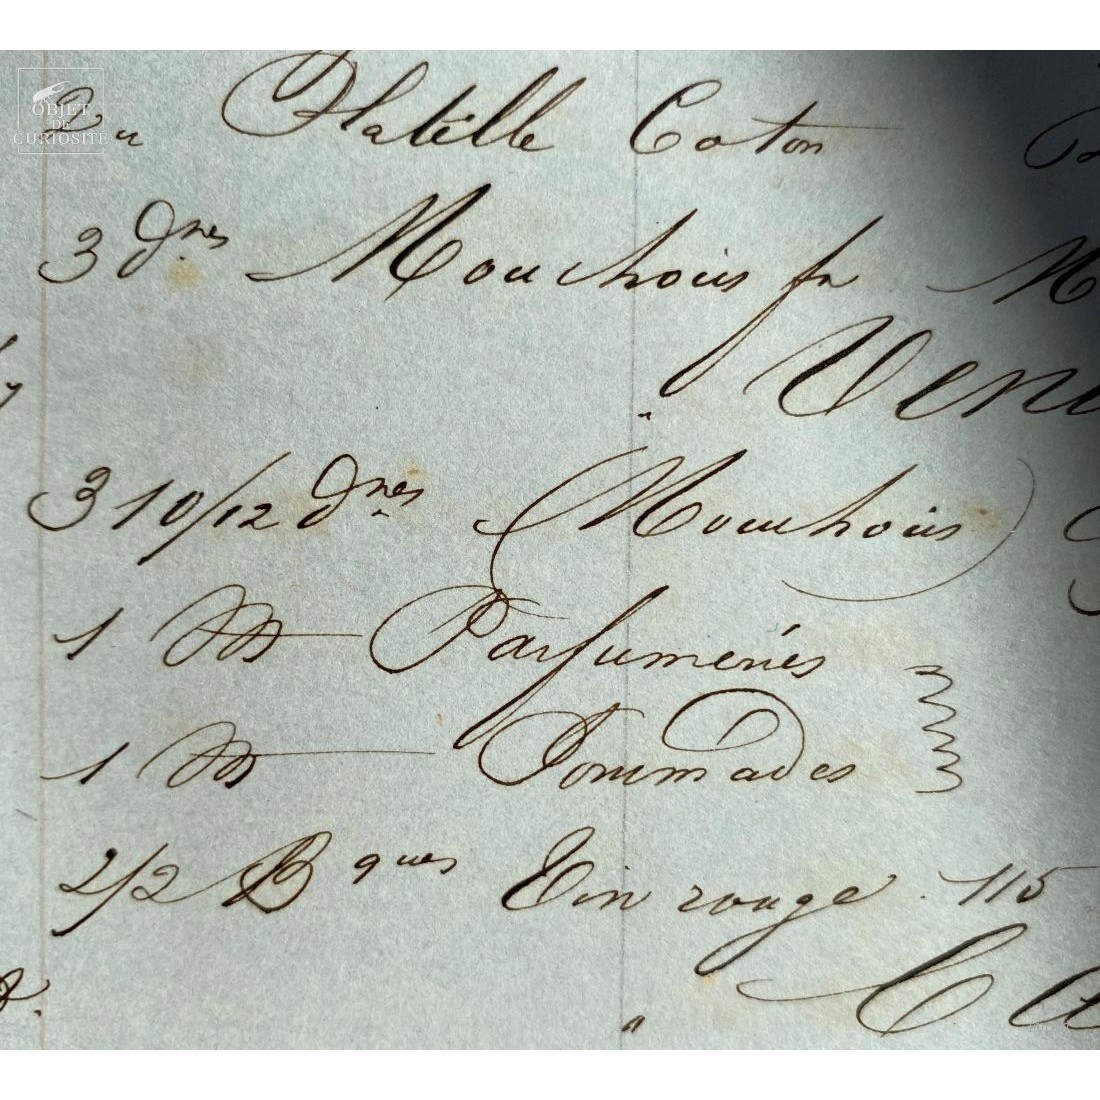 OBJET
DE
CURIOSITÉ
Du Flatille Coton
3 dnes Mouchoirs fn M
Ven
3 10/12 dnes (Mouchoirs)
1 M Parfumeries
1 M Pommades
2/2 Bques Vin rouge 115
"